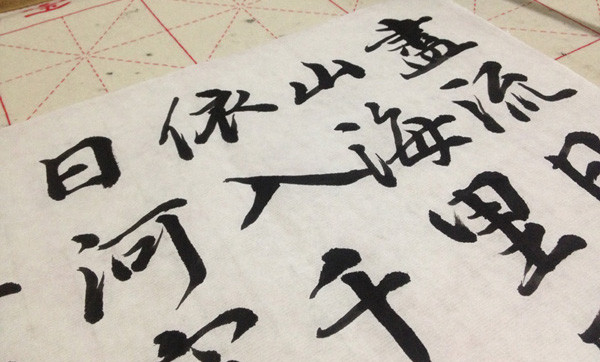 日依山盡
河入海流
千里